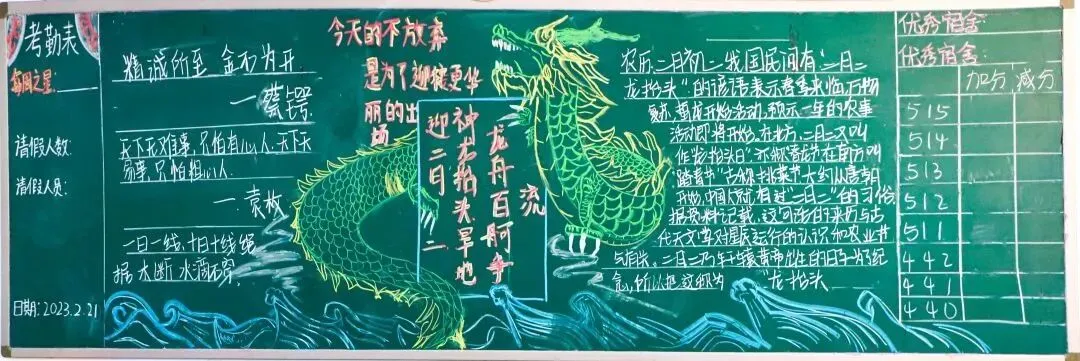 考勤表
每周之星:
请假人数:
请假人员:
日期:2023.2.21
精诚所至 金石为开
—蔡锷
天下无难事,只怕有心人,天下无
易事,只怕粗心人
—袁枚
一日一线,十日十线 绳
锯木断 水滴石穿
今天的不放弃
是为了迎接更华
丽的出
场
龙舟百舸争流
神龙抬头旱地
迎二月二
农历二月初二,我国民间有"二月二
龙抬头"的谚语表示春季来临,万物
复苏,蛰龙开始活动,预示一年的农事
活动即将开始,在北方,二月二又叫
作"龙抬头日"亦称春龙节,在南方叫
踏青节,古称挑菜节,大约从唐朝
开始,中国人就有过"二月二"的习俗
据资料记载,这句话的来历与古
代天文学对星辰运行的认识和农业节
气有关。二月二
出生的日子 纪
念,所以把这称为"龙抬头
优秀宿舍
优秀宿舍:
加分 减分
515
514
513
512
511
442
441
440